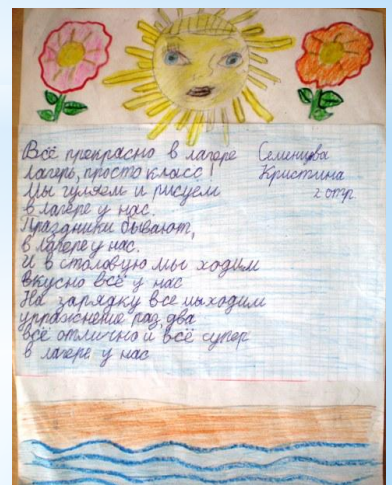 Всё прекрасно в лагере
Лагерь, просто класс
Мы гуляем и рисуем
в лагере у нас.
Праздники бывают,
в лагере у нас.
И в столовую мы ходим
вкусно всё у нас
На зарядку все выходим
упражнение раз, два
всё отлично и всё супер
в лагере у нас
Семенцова
Кристина
2 отр